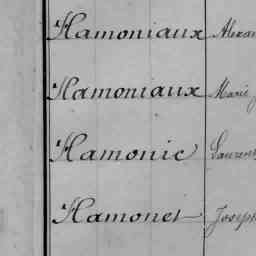 Hamoniaux Alexan
Hamoniaux Marie
Hamonic Laurent
Hamonet Joseph